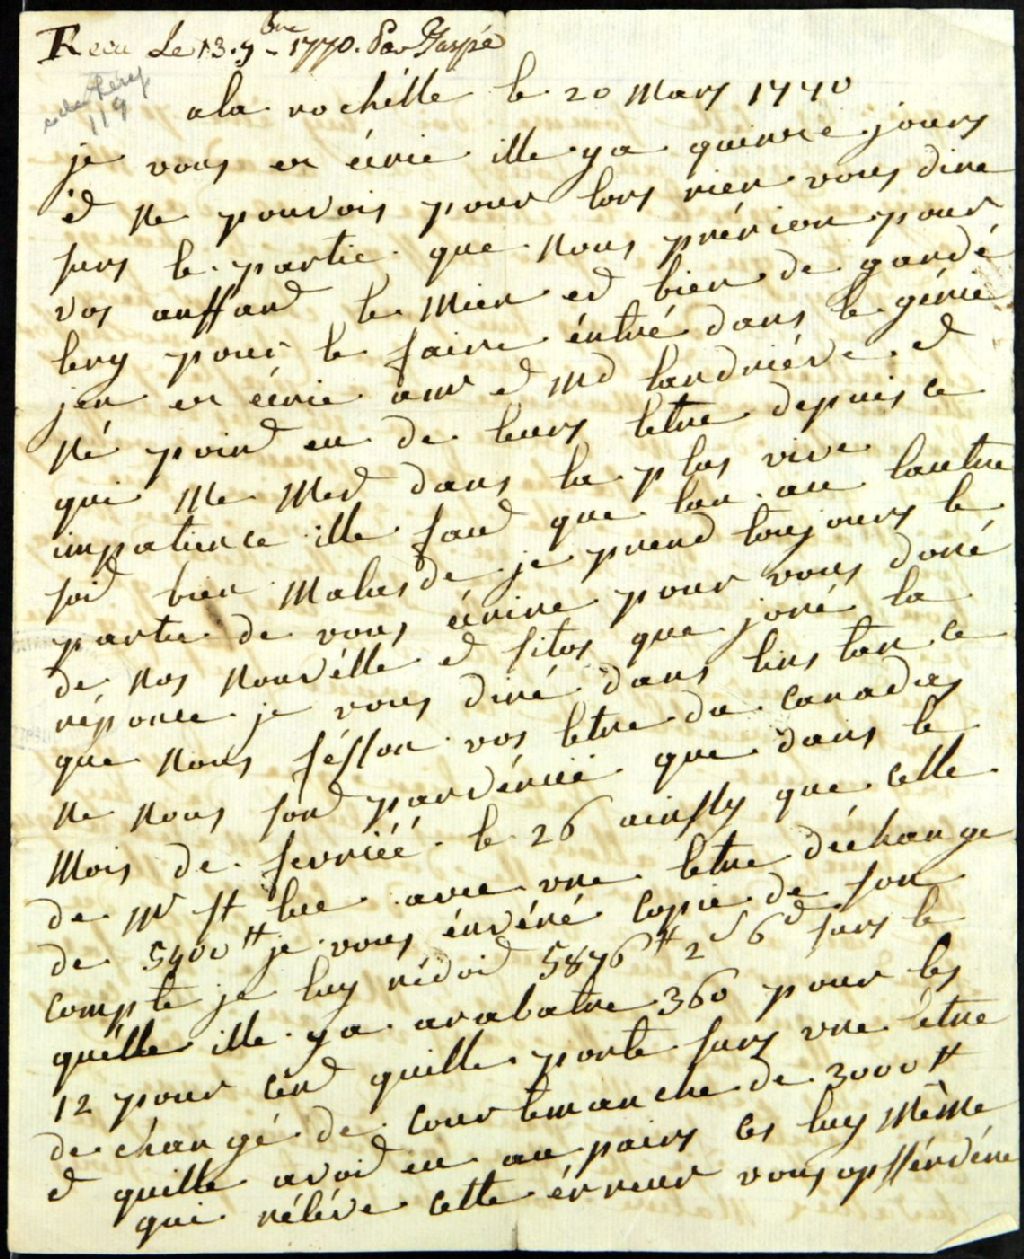 Recu Le 13. 7bre 1770. Par Gaspé
119
a la rochélle le 20 Mars 1770
je vous er écrie ille ya quinze jours
é ne pouvois pour lors rien vous dire
surs le partie que nous prérion pour
vos anffand le mien ed bien de gardé
lery pour le faire éntré dans le génie
jen er écrie a mr é Md landriéve é
né poind eu de leurs letre depuis ce
qui me med dans la plus vive
impatience ille faud que lun au lautre
soid bien malade je prend toujours le
partie de vous écrire pour vous doné
de nos nouvélle é sitos que joré la
réponce je vous diré dans lins tan ce
que nous fésson vos letre du canadas
ne nous son parvénue que dans le
mois de fevriéé le 26 ainssy que celle
de Mr St luc avec une letre déchange
de 5400 ₶ je vous énvéré copie de son
compte je luy rédoid 5876 ₶ 2 s 6 d surs le
quélle ille ya arabatre 360 pour les
12 pour cénd quille porte surs une letre
de change de courtemanche de 3000 ₶
é quille avoid eu au pairs ces luy même
qui reléve cette érreur vous opssérvéré